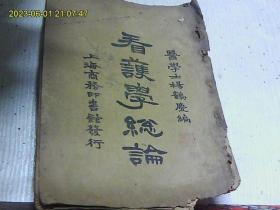 2023-06-01 21:07:47
醫學士楊鶴慶編
看護學總論
上海商務印書館發行